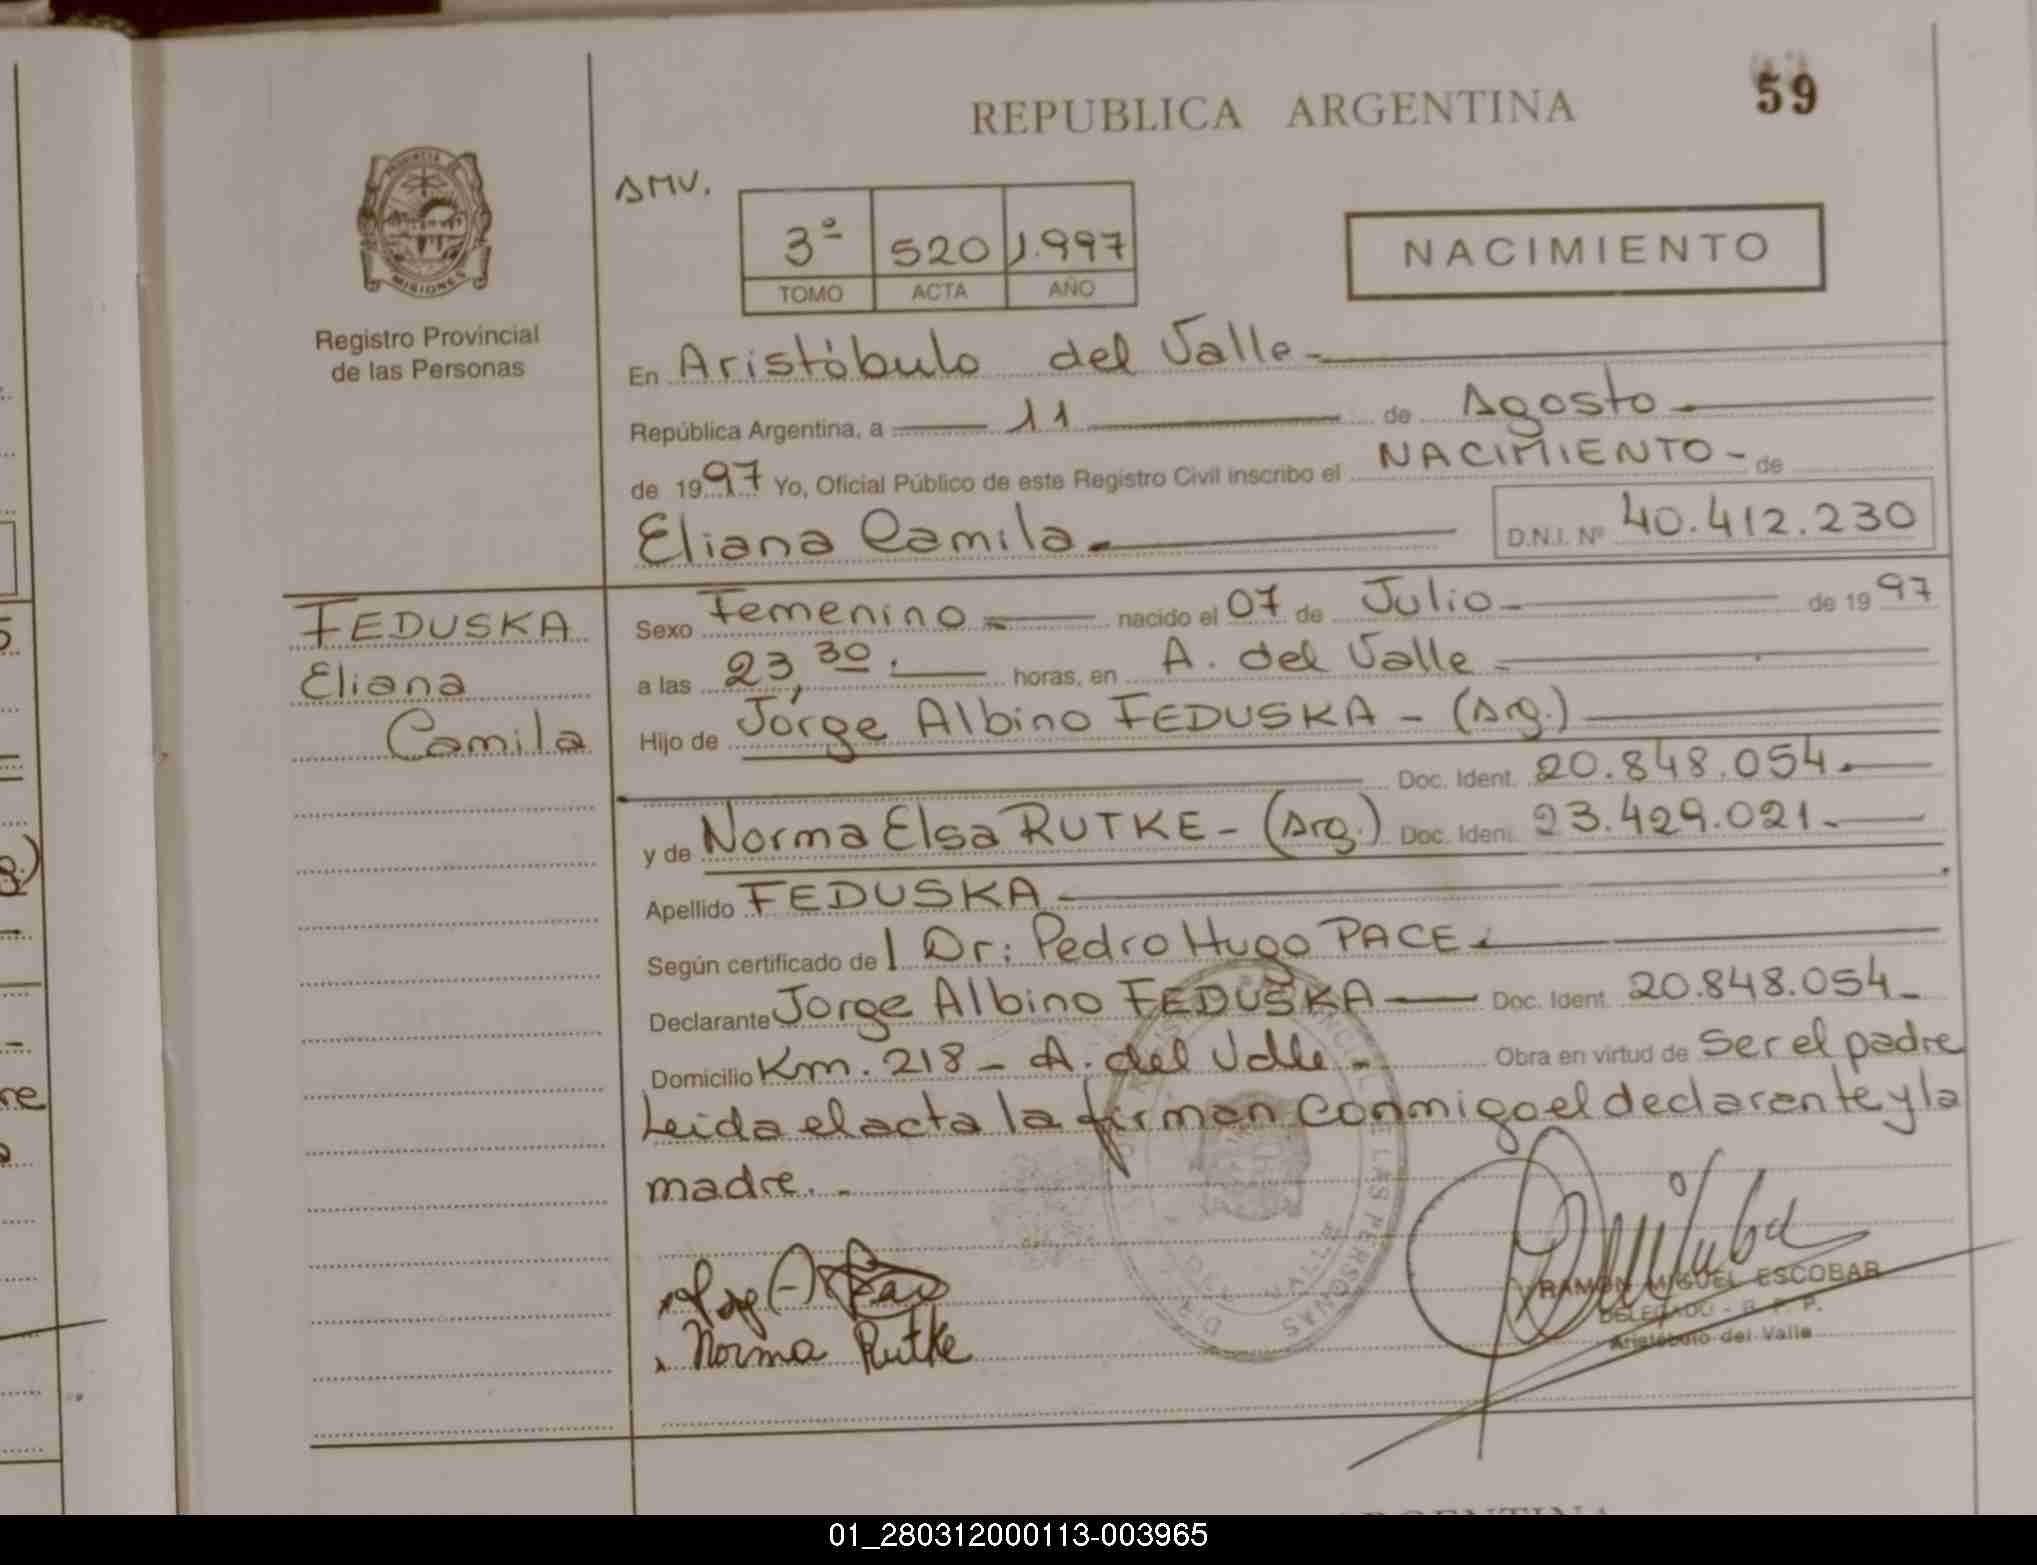 REPUBLICA ARGENTINA
59
PROVINCIA
MISIONES
Registro Provincial
de las Personas
AMV.
3º 520 1.997
TOMO ACTA AÑO
NACIMIENTO
En Aristóbulo del Valle -
República Argentina, a 11 de Agosto
de 1997 Yo, Oficial Público de este Registro Civil inscribo el NACIMIENTO - de
Eliana Camila. D.N.I. Nº 40.412.230
FEDUSKA
Eliana
Camila
Sexo Femenino nacido el 07 de Julio de 1997
a las 23,30. horas, en A. del Valle
Hijo de Jorge Albino FEDUSKA - (Arg.)
Doc. Ident. 20.848.054.
y de Norma Elsa RUTKE - (Arg.) Doc. Ident. 23.429.021.
Apellido FEDUSKA
Según certificado de l Dr: Pedro Hugo PACE.
Declarante Jorge Albino FEDUSKA Doc. Ident. 20.848.054.
Domicilio Km. 218 - A. del Valle - Obra en virtud de Ser el padre
Leida el acta la firman conmigo el declarante y la
madre. -
Norma Rutke
RAMON MIGUEL ESCOBAR
DELEGADO - R. P. P.
Aristóbulo del Valle
01_280312000113-003965